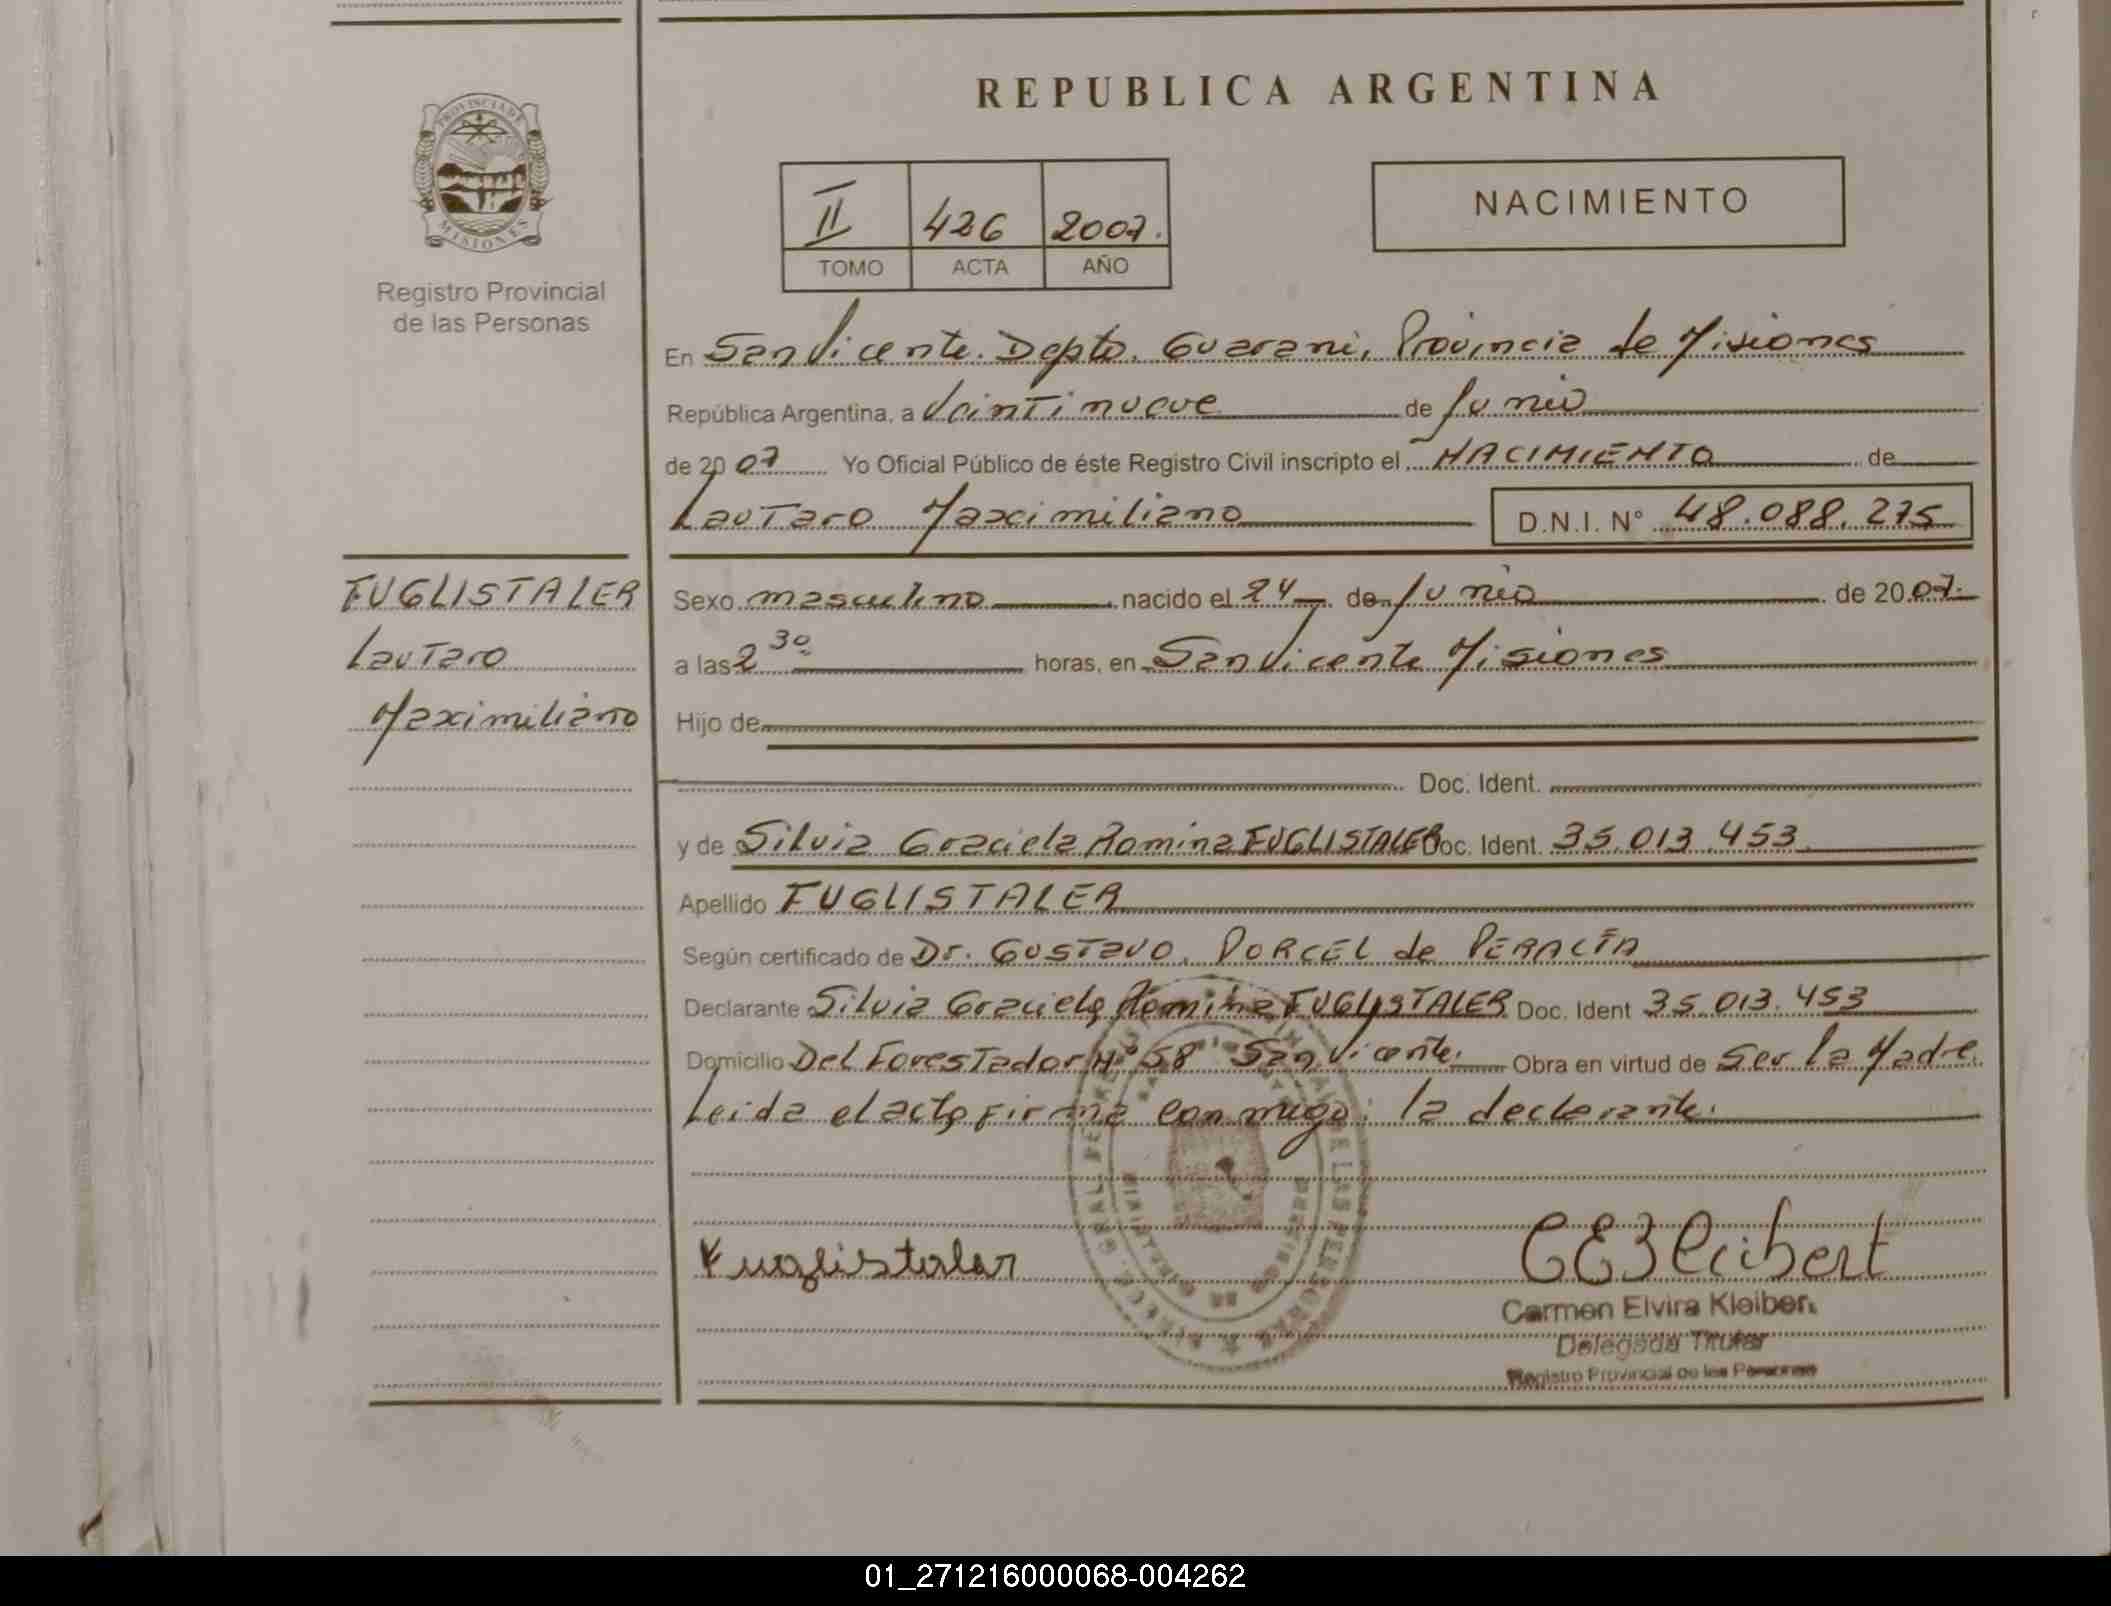 PROVINCIA DE
MISIONES
Registro Provincial
de las Personas
REPUBLICA ARGENTINA
II 426 2007.
TOMO ACTA AÑO
NACIMIENTO
En San Vicente. Depto. Guarani, Provincia de Misiones
República Argentina, a Veinti nueve de Junio
de 20 07 Yo Oficial Público de éste Registro Civil inscripto el NACIMIENTO de
Lautaro Maximiliano D.N.I. N° 48.088.275
FUGLISTALER
Lautaro
Maximiliano
Sexo masculino nacido el 24 de Junio de 20 07.
a las 2 30 horas, en San Vicente Misiones
Hijo de
Doc. Ident.
y de Silvia Graciela Romina FUGLISTALER Doc. Ident. 35.013.453
Apellido FUGLISTALER
Según certificado de Dr. Gustavo. PORCEL de PERALTA
Declarante Silvia Graciela Romina FUGLISTALER Doc. Ident 35.013.453
Domicilio Del Forestador N° 58 San Vicente. Obra en virtud de Ser la Madre.
Leida el acta firma con migo: la declarante.
Fuglistaler
CEKleibert
Carmen Elvira Kleiber
Delegada Titular
Registro Provincial de las Personas
01_271216000068-004262